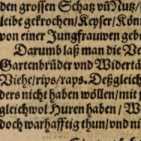 den grossen Schatz vñ Nutz/
leibe gekrochen/Keyser/Kön
von einer Jungfrauwen geb
Darumb laß man die Ve
Gartenbrüder vnd Widertä
Viehe/rips/raps. Deßgleich
ders nicht haben wöllen/mit
gleichwol Huren haben/W
doch warhafftig thun/vnd ni